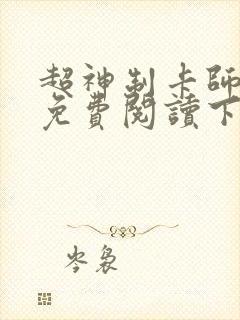 超神制卡師
免費閱讀下
岑裊